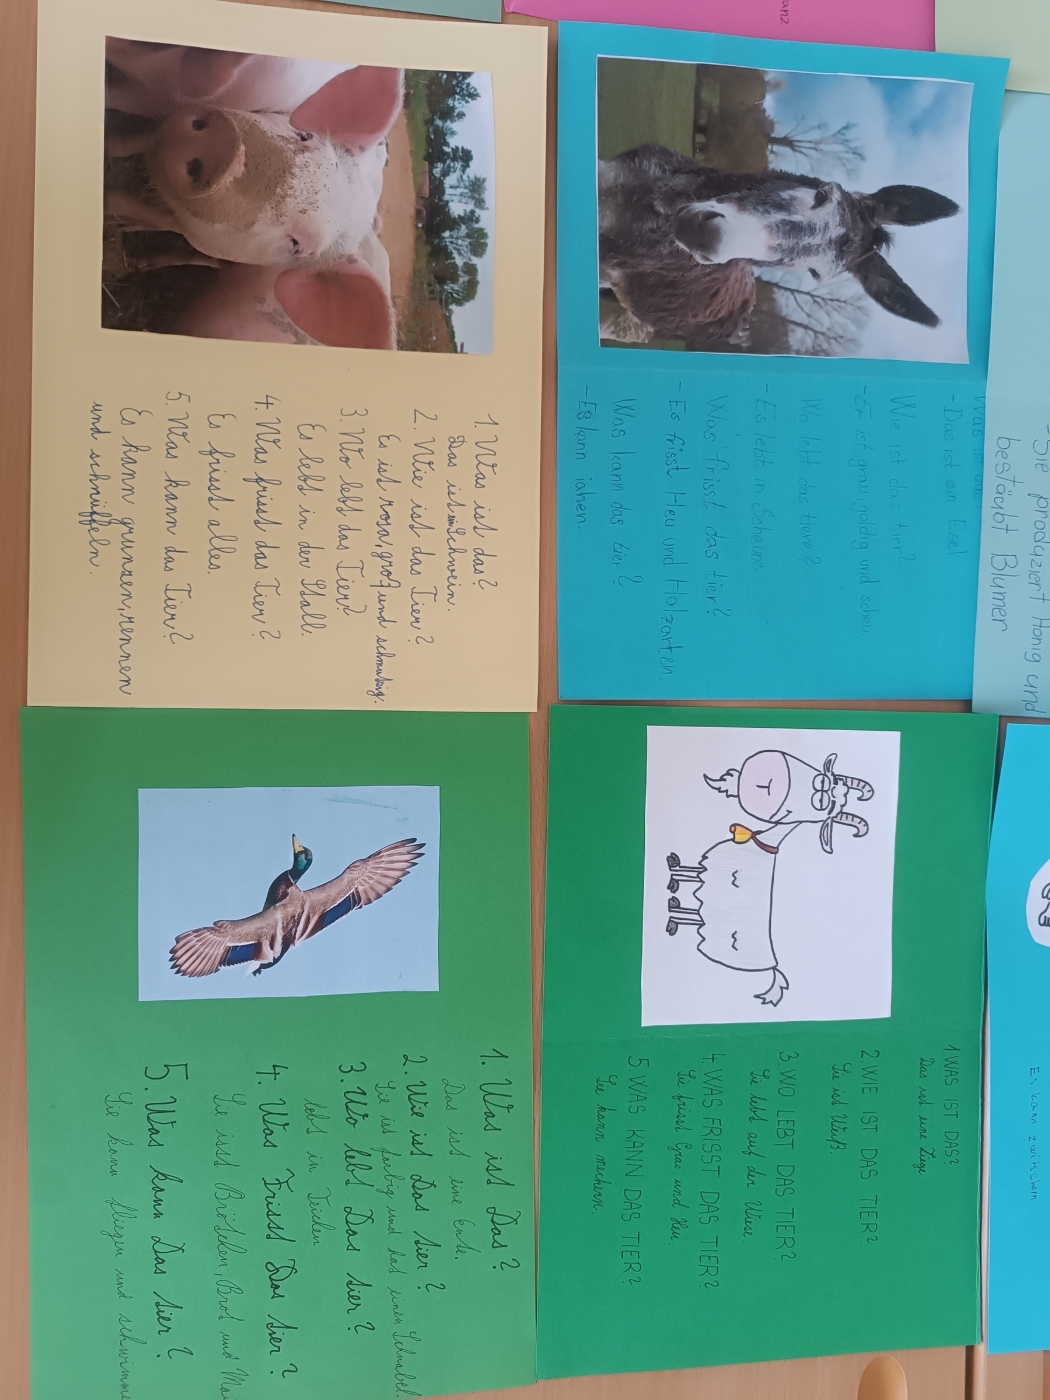 1. Was ist das?
Das ist ein Schwein.
2. Wie ist das Tier?
Es ist rosa, groß und schmutzig.
3. Wo lebt das Tier?
Es lebt in der Stall.
4. Was frisst das Tier?
Es frisst alles.
5. Was kann das Tier?
Es kann grunzen, rennen
und schnüffeln.
Was ist
-Das ist ein Esel
Wie ist das tier?
-Er ist grau, goldig und scheu.
Wo lebt das tiere?
-Es lebt in Scheune
Was frisst das tier?
-Es frisst Heu und Holzarten.
Was kann das tier?
-Es kann iahen.
-Sie prodyziert Honig und
bestäubt Blumen
1. Was ist Das?
Das ist eine Ente.
2. Wie ist Das tier?
Sie ist farbig und hat einen Schnabel.
3. Wo lebt Das tier?
lebt in Teichen
4. Was Frisst Das tier?
Sie isst Brötchen, Brot und
5. Was kann Das tier?
Sie kann fliegen und schwimme
1. WAS IST DAS?
Das ist eine Ziege.
2. WIE IST DAS TIER?
Sie ist Weiß.
3. WO LEBT DAS TIER?
Sie lebt auf der Wiese.
4. WAS FRISST DAS TIER?
Sie frisst Gras und Heu.
5. WAS KANN DAS TIER?
Sie kann meckern.
Er kann zwitschern
anz